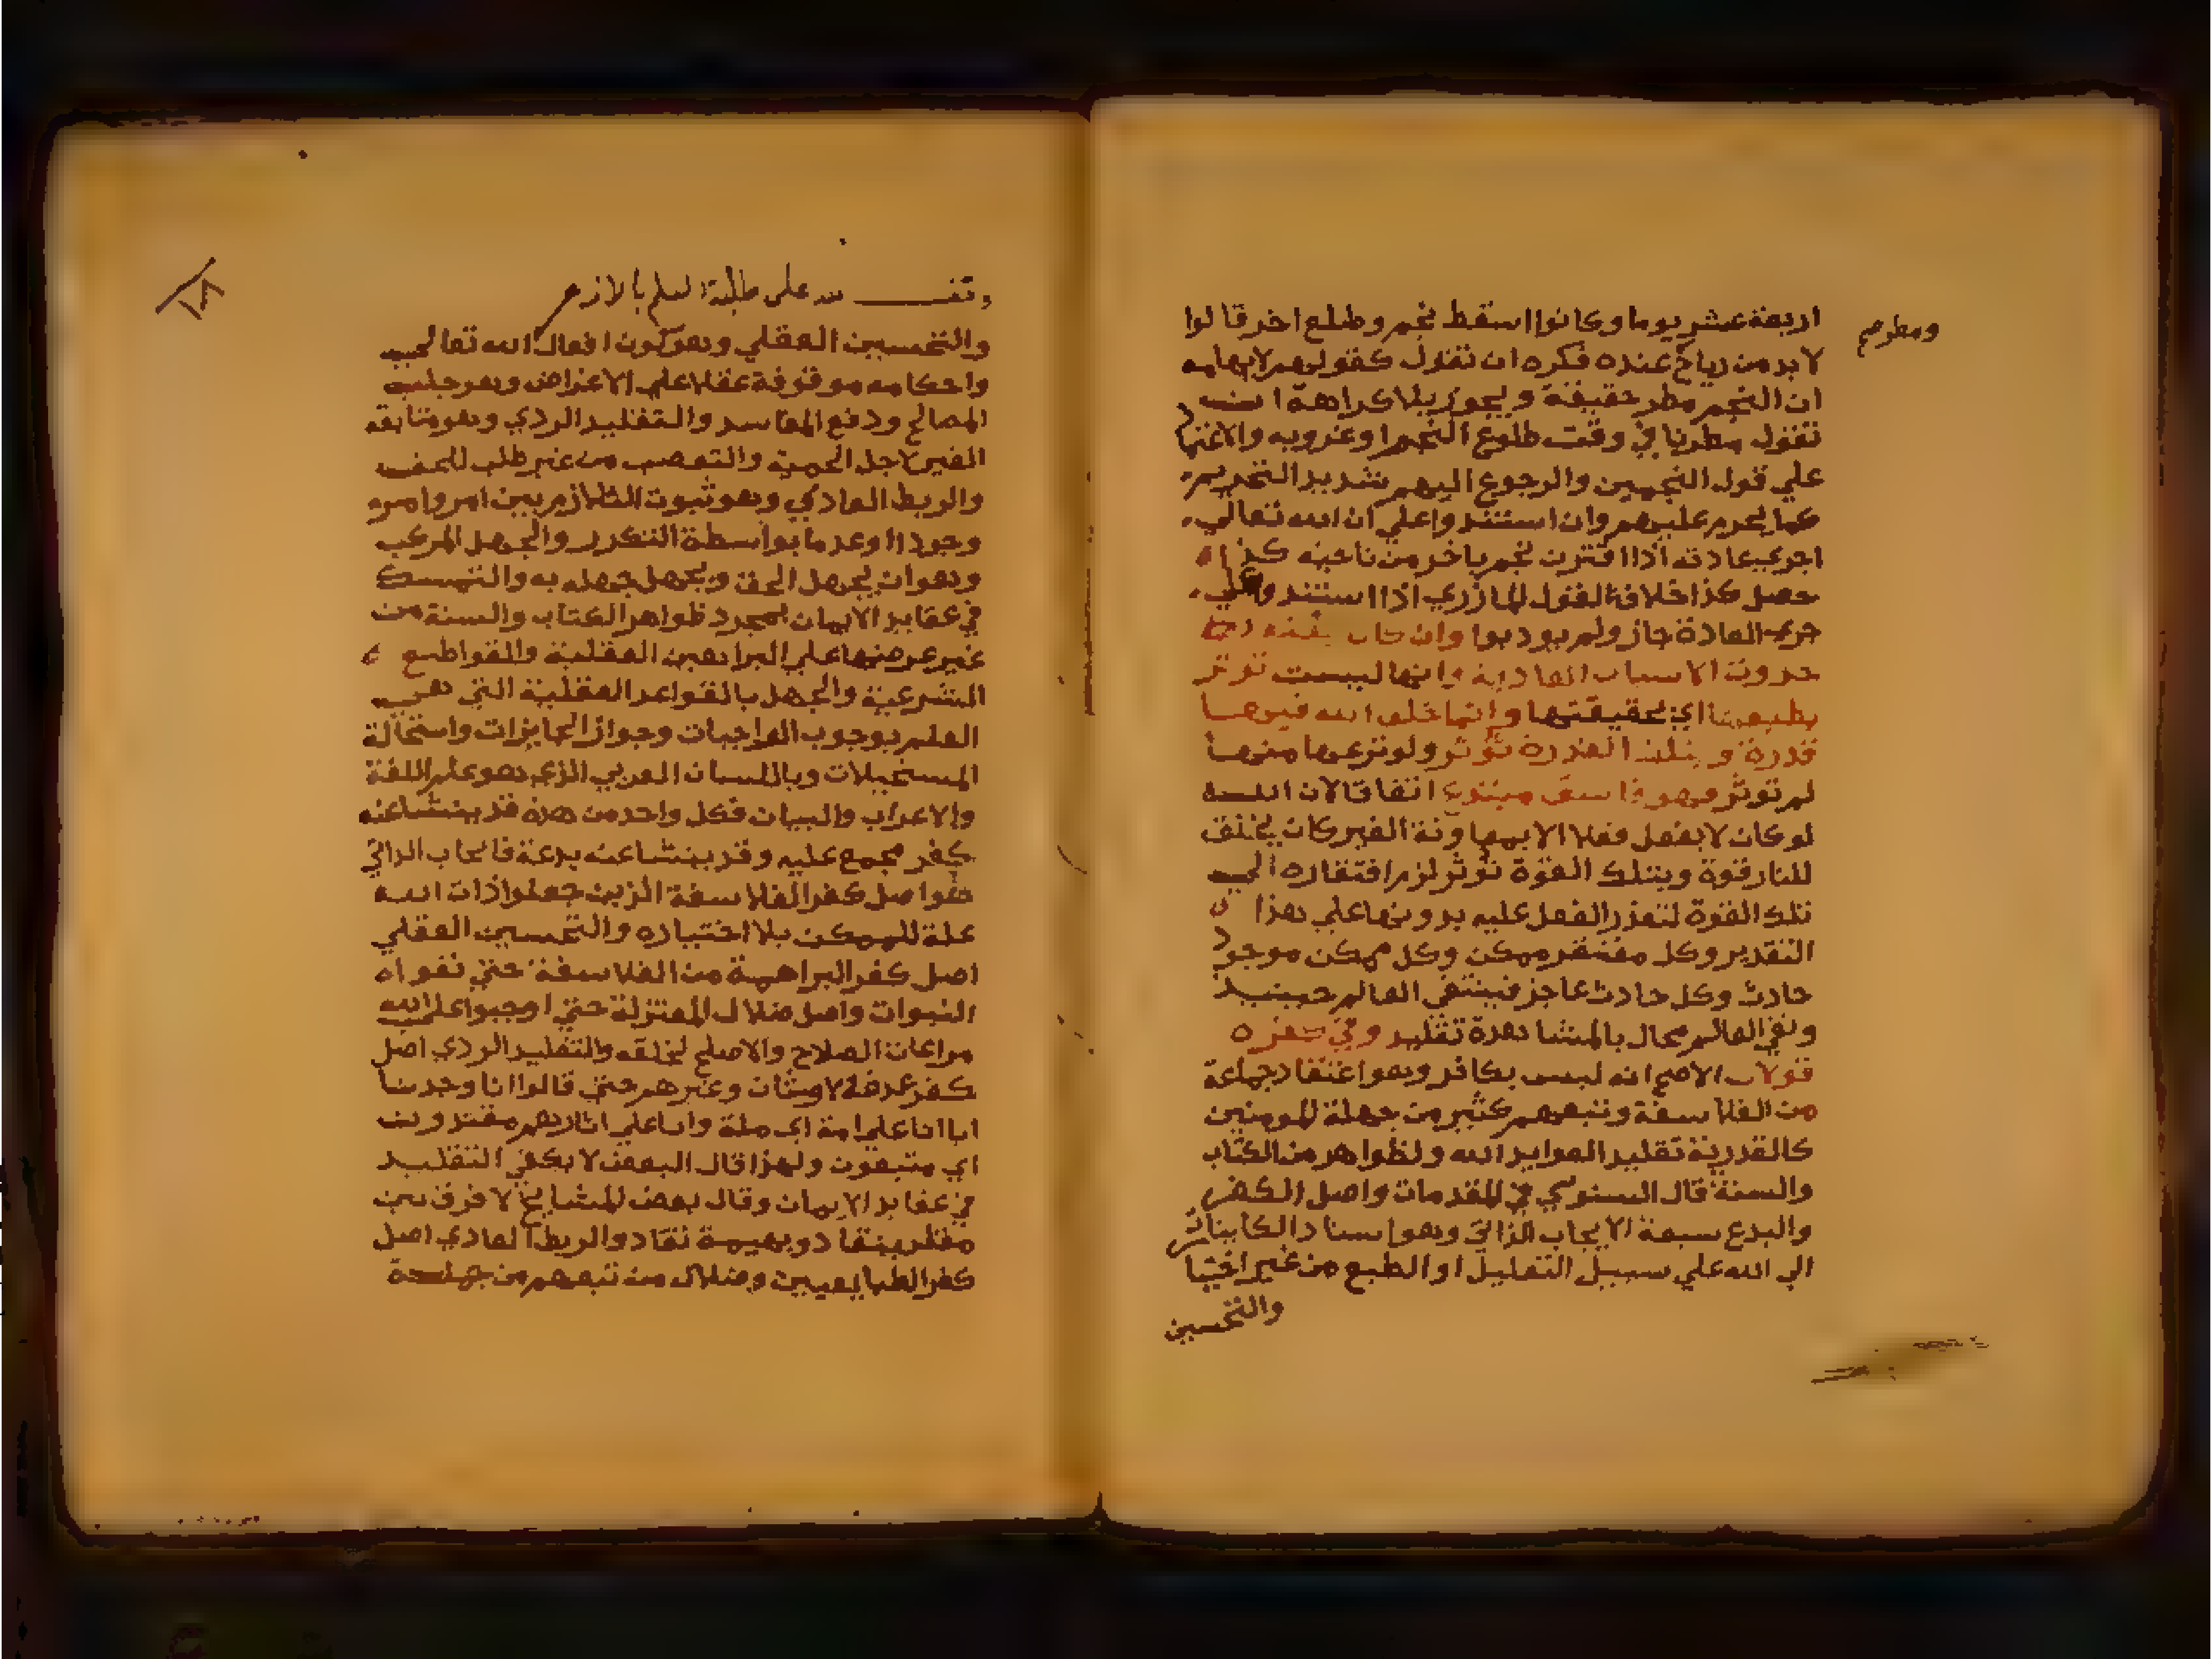 اربعة عشر يوما وكانوا اذا سقط نجم وطلع اخر قالوا
لابد من رياح عنده فكره ان نقول كقولهم لايهامه
ان النجم مطر حقيقة ويجوز بلا كراهة ان
نقول مطرنا في وقت طلوع النجم او غروبه والاعتماد
علي قول المنجمين والرجوع اليهم شديد التحريم
كما يحرم عليهم وان استندوا علي ان الله تعالي
اجري عادته اذا اقترن نجم باخر من ناحية كذا
حصل كذا خلافا لقول المازري اذا استندوا علي
جري العادة جاز ولم يودبوا وان كان يعتقد
حدوث الاسباب العادية وانها ليست توثر
بطبعها اي بحقيقتها وانما خلق الله فيها
قدرة وبتلك القدرة توثر ولو نزعها منها
لم توثر فهو فاسق مبتدع اتفاقا لان الله
لو كان لا يفعل فعلا الا بمعاونة الغير كان يخلق
للنار قوة وبتلك القوة توثر لزم افتقاره الي
تلك القوة لتعذر الفعل عليه بدونها علي هذا
التقدير وكل مفتقر ممكن وكل ممكن موجود
حادث وكل حادث عاجز فينتفي العالم حينيذ
ونفي العالم محال بالمشاهدة تقليد وفي كفره
قولان الاصح انه ليس بكافر وهو اعتقاد جماعة
من الفلاسفة وتبعهم كثير من جهلة المومنين
كالقدرية تقليد العوايد الله ولظواهر من الكتاب
والسنة قال السنوسي في المقدمات واصل الكفر
والبدع سبعة الايجاب الذاتي وهو اسناد الكاينات
الي الله علي سبيل التعليل او الطبع من غير اختيا
والتحسين
وقف علي طلبة العلم بالازهر
والتحسين العقلي وهو كون افعال الله تعالي
واحكامه موقوفة عقلا علي الاعراض وهو جلب
المصالح ودفع المفاسد والتقليد الردي وهو متابعة
الغير لاجل الحمية والتعصب من غير طلب للحق
والربط العادي وهو ثبوت التلازم بين امر وامر
وجودا او عدما بواسطة التكرر والجهل المركب
وهو ان يجهل الحق ويجهل جهله به والتمسك
في عقايد الايمان بمجرد ظواهر الكتاب والسنة من
غير عرضها علي البراهين العقلية والقواطع
الشرعية والجهل بالقواعد العقلية التي هي
العلم بوجوب الواجبات وجواز الجايزات واستحالة
المستحيلات وباللسان العربي الذي هو علم اللغة
والاعراب والبيان فكل واحد من هذه قد ينشا عنه
كفر مجمع عليه وقد ينشا عنه بدعة فايجاب الذاتي
هو اصل كفر الفلاسفة الذين جعلوا ذات الله
علة للممكن بلا اختياره والتحسين العقلي
اصل كفر البراهمة من الفلاسفة حتي نفوا
النبوات واصل ضلال المعتزلة حتي اوجبوا علي الله
مراعات الصلاح والاصلح لخلقه والتقليد الردي اصل
كفر عبدة الاوثان وغيرهم حتي قالوا انا وجدنا
ابااناعلي امة اي ملة وانا علي اثارهم مقتدون
اي متبعون ولهذا قال البعض لا يكفي التقليد
في عقايد الايمان وقال بعض المشايخ لا فرق بين
مقلد ينقاد وبهيمة تقاد والربط العادي اصل
كفر الطبايعيين وضلال من تبعهم من جهلة